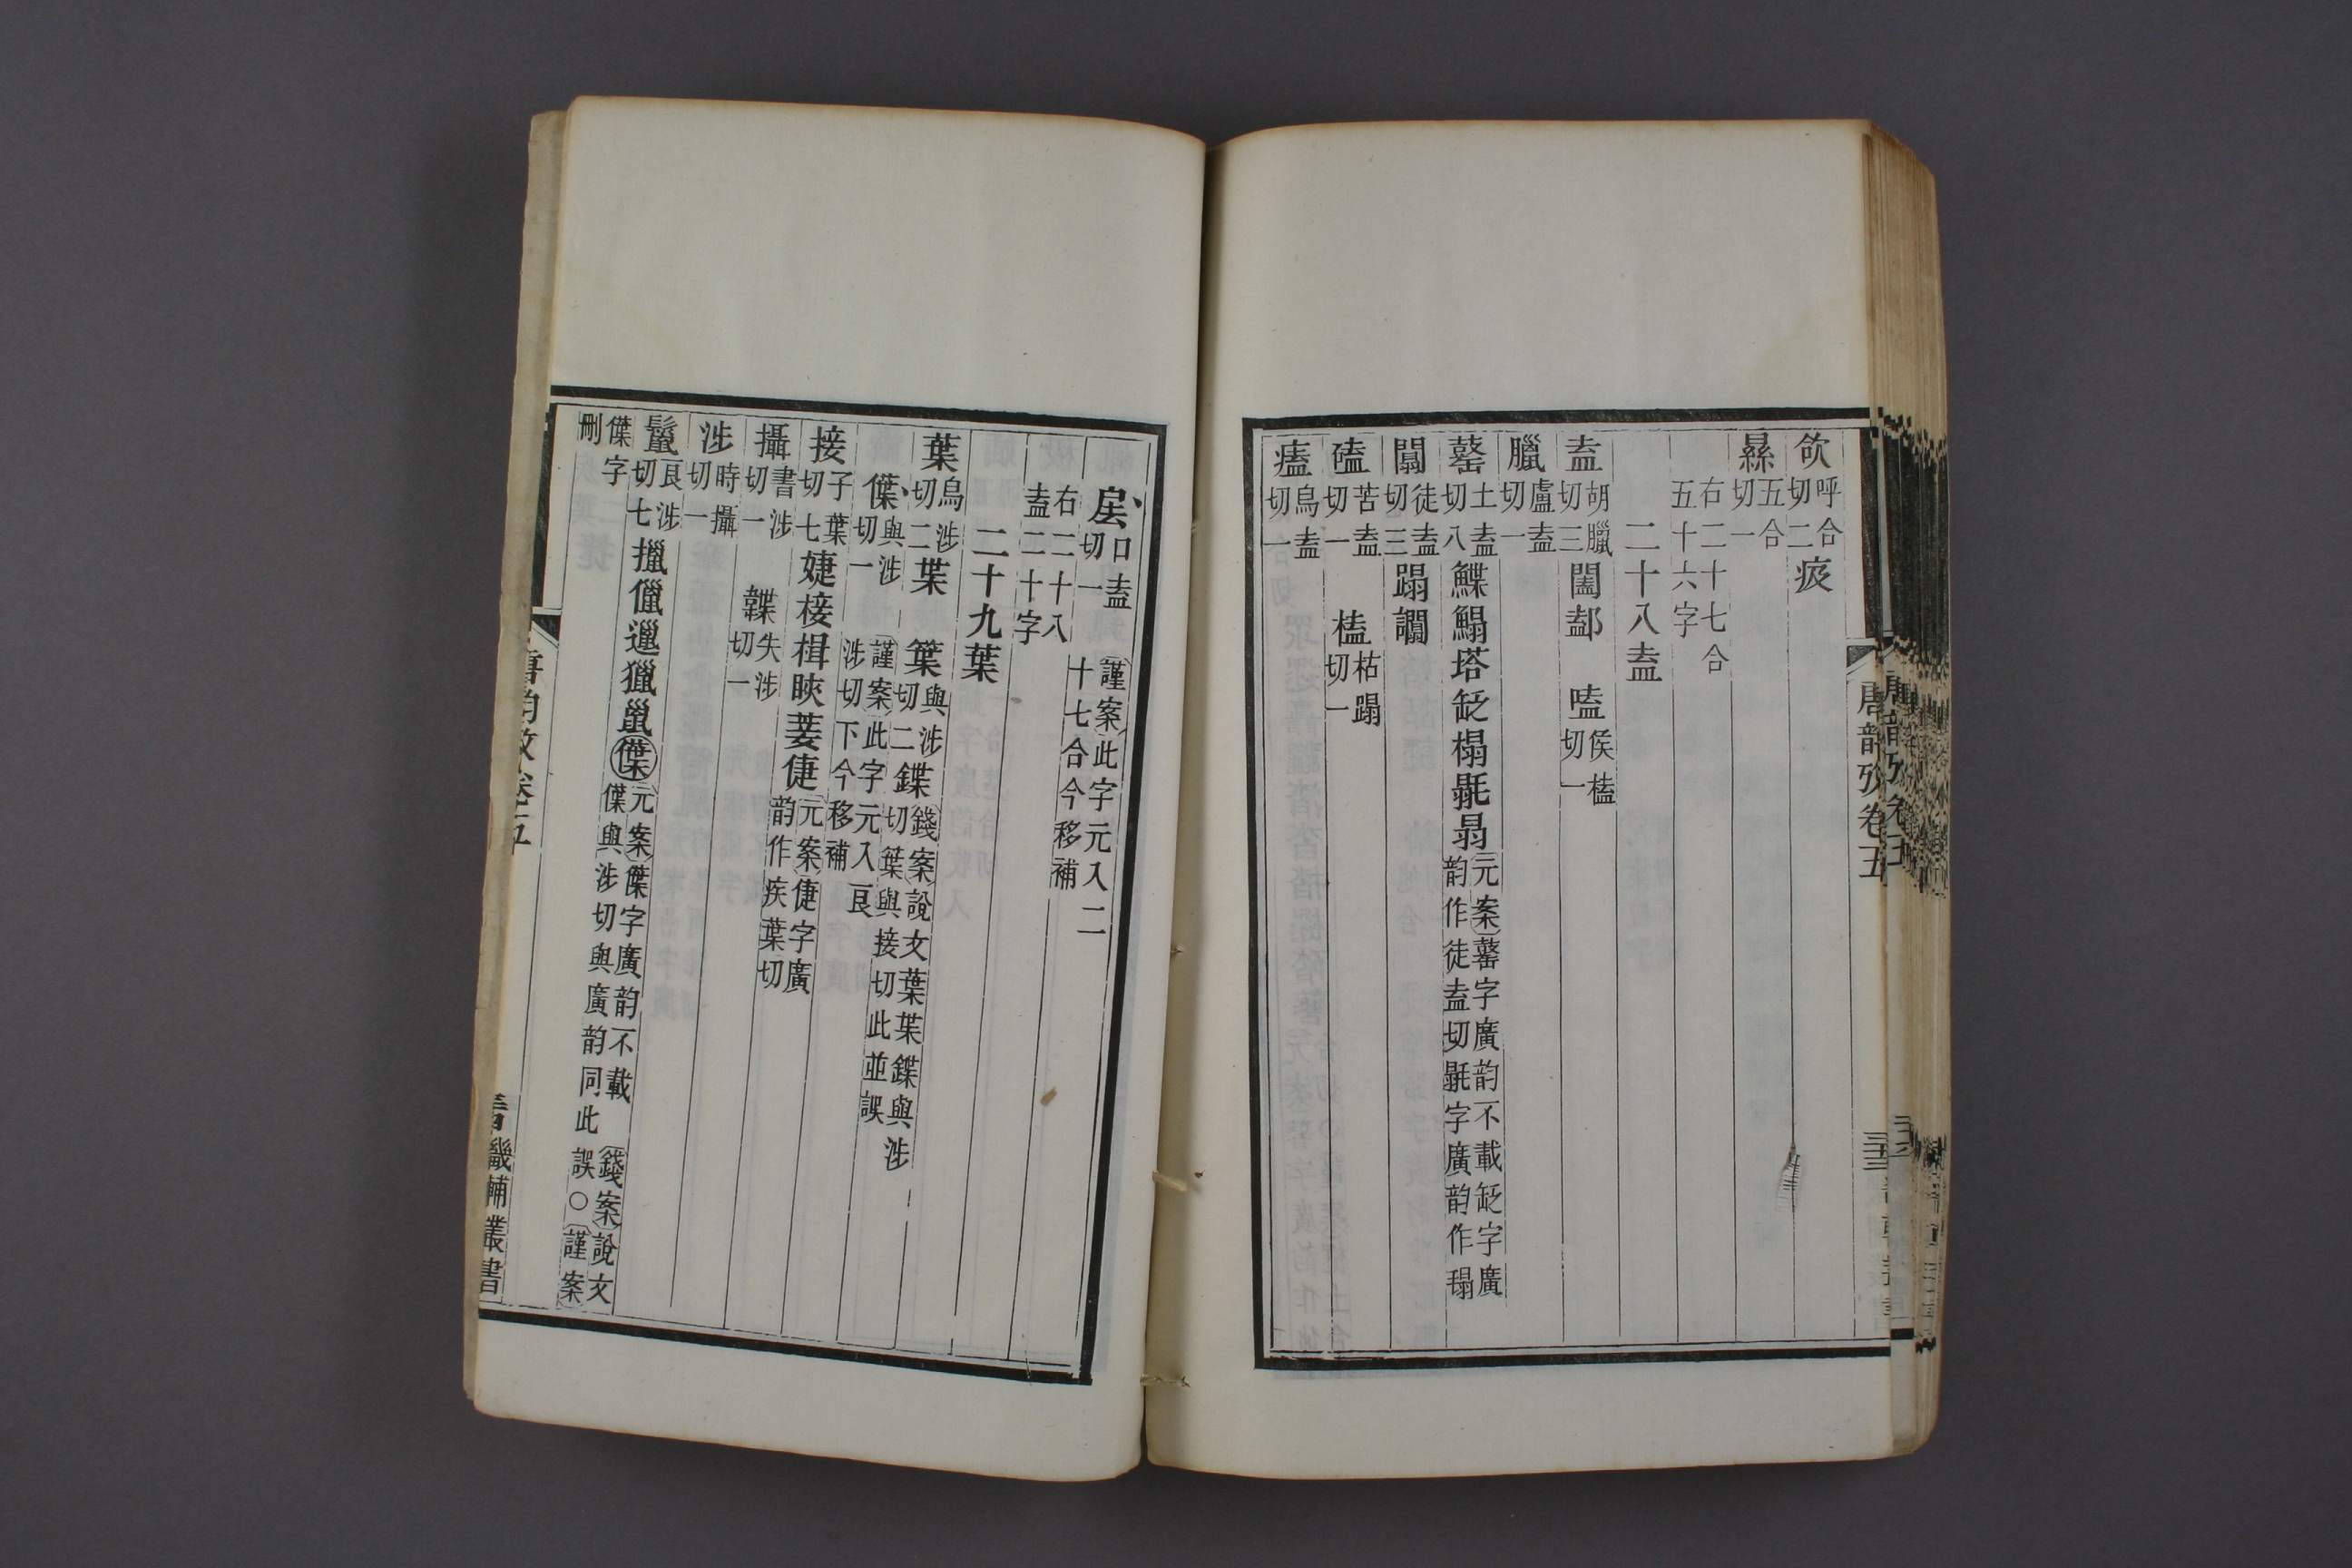 欱呼合切二㾑
㬎五合切一
右二十七合
五十六字
二十八盍
盍胡臘切三闔䣤　嗑侯榼切一
臘盧盍切一
䶀土盍切八鰈鰨塔㲺榻毾𦐇元案䶀字廣韵不載㲺字廣韵作徒盍切毾字廣韵作㲩
闒徒盍切三蹋讕
磕苦盍切一　榼枯蹋切一
瘱烏盍切一
唐韵攷卷五
㕎口盍切一　謹案此字元入二十七合今移補
右二十八
盍二十字
二十九葉
葉烏涉切二枼　䈎與涉切二鍱錢案說文葉枼鍱與涉切䈎與接切此並誤
僷與涉切一　謹案此字元入㫰涉切下今移補
接子葉切七婕椄楫䀹萎倢元案倢字廣韵作疾葉切
攝書涉切一　韘失涉切一
涉時攝切一
鬣良涉切七擸儠邋獵巤僷元案僷字廣韵不載僷與涉切與廣韵同此誤○謹案
僷字刪
唐韵攷卷五
畿輔叢書